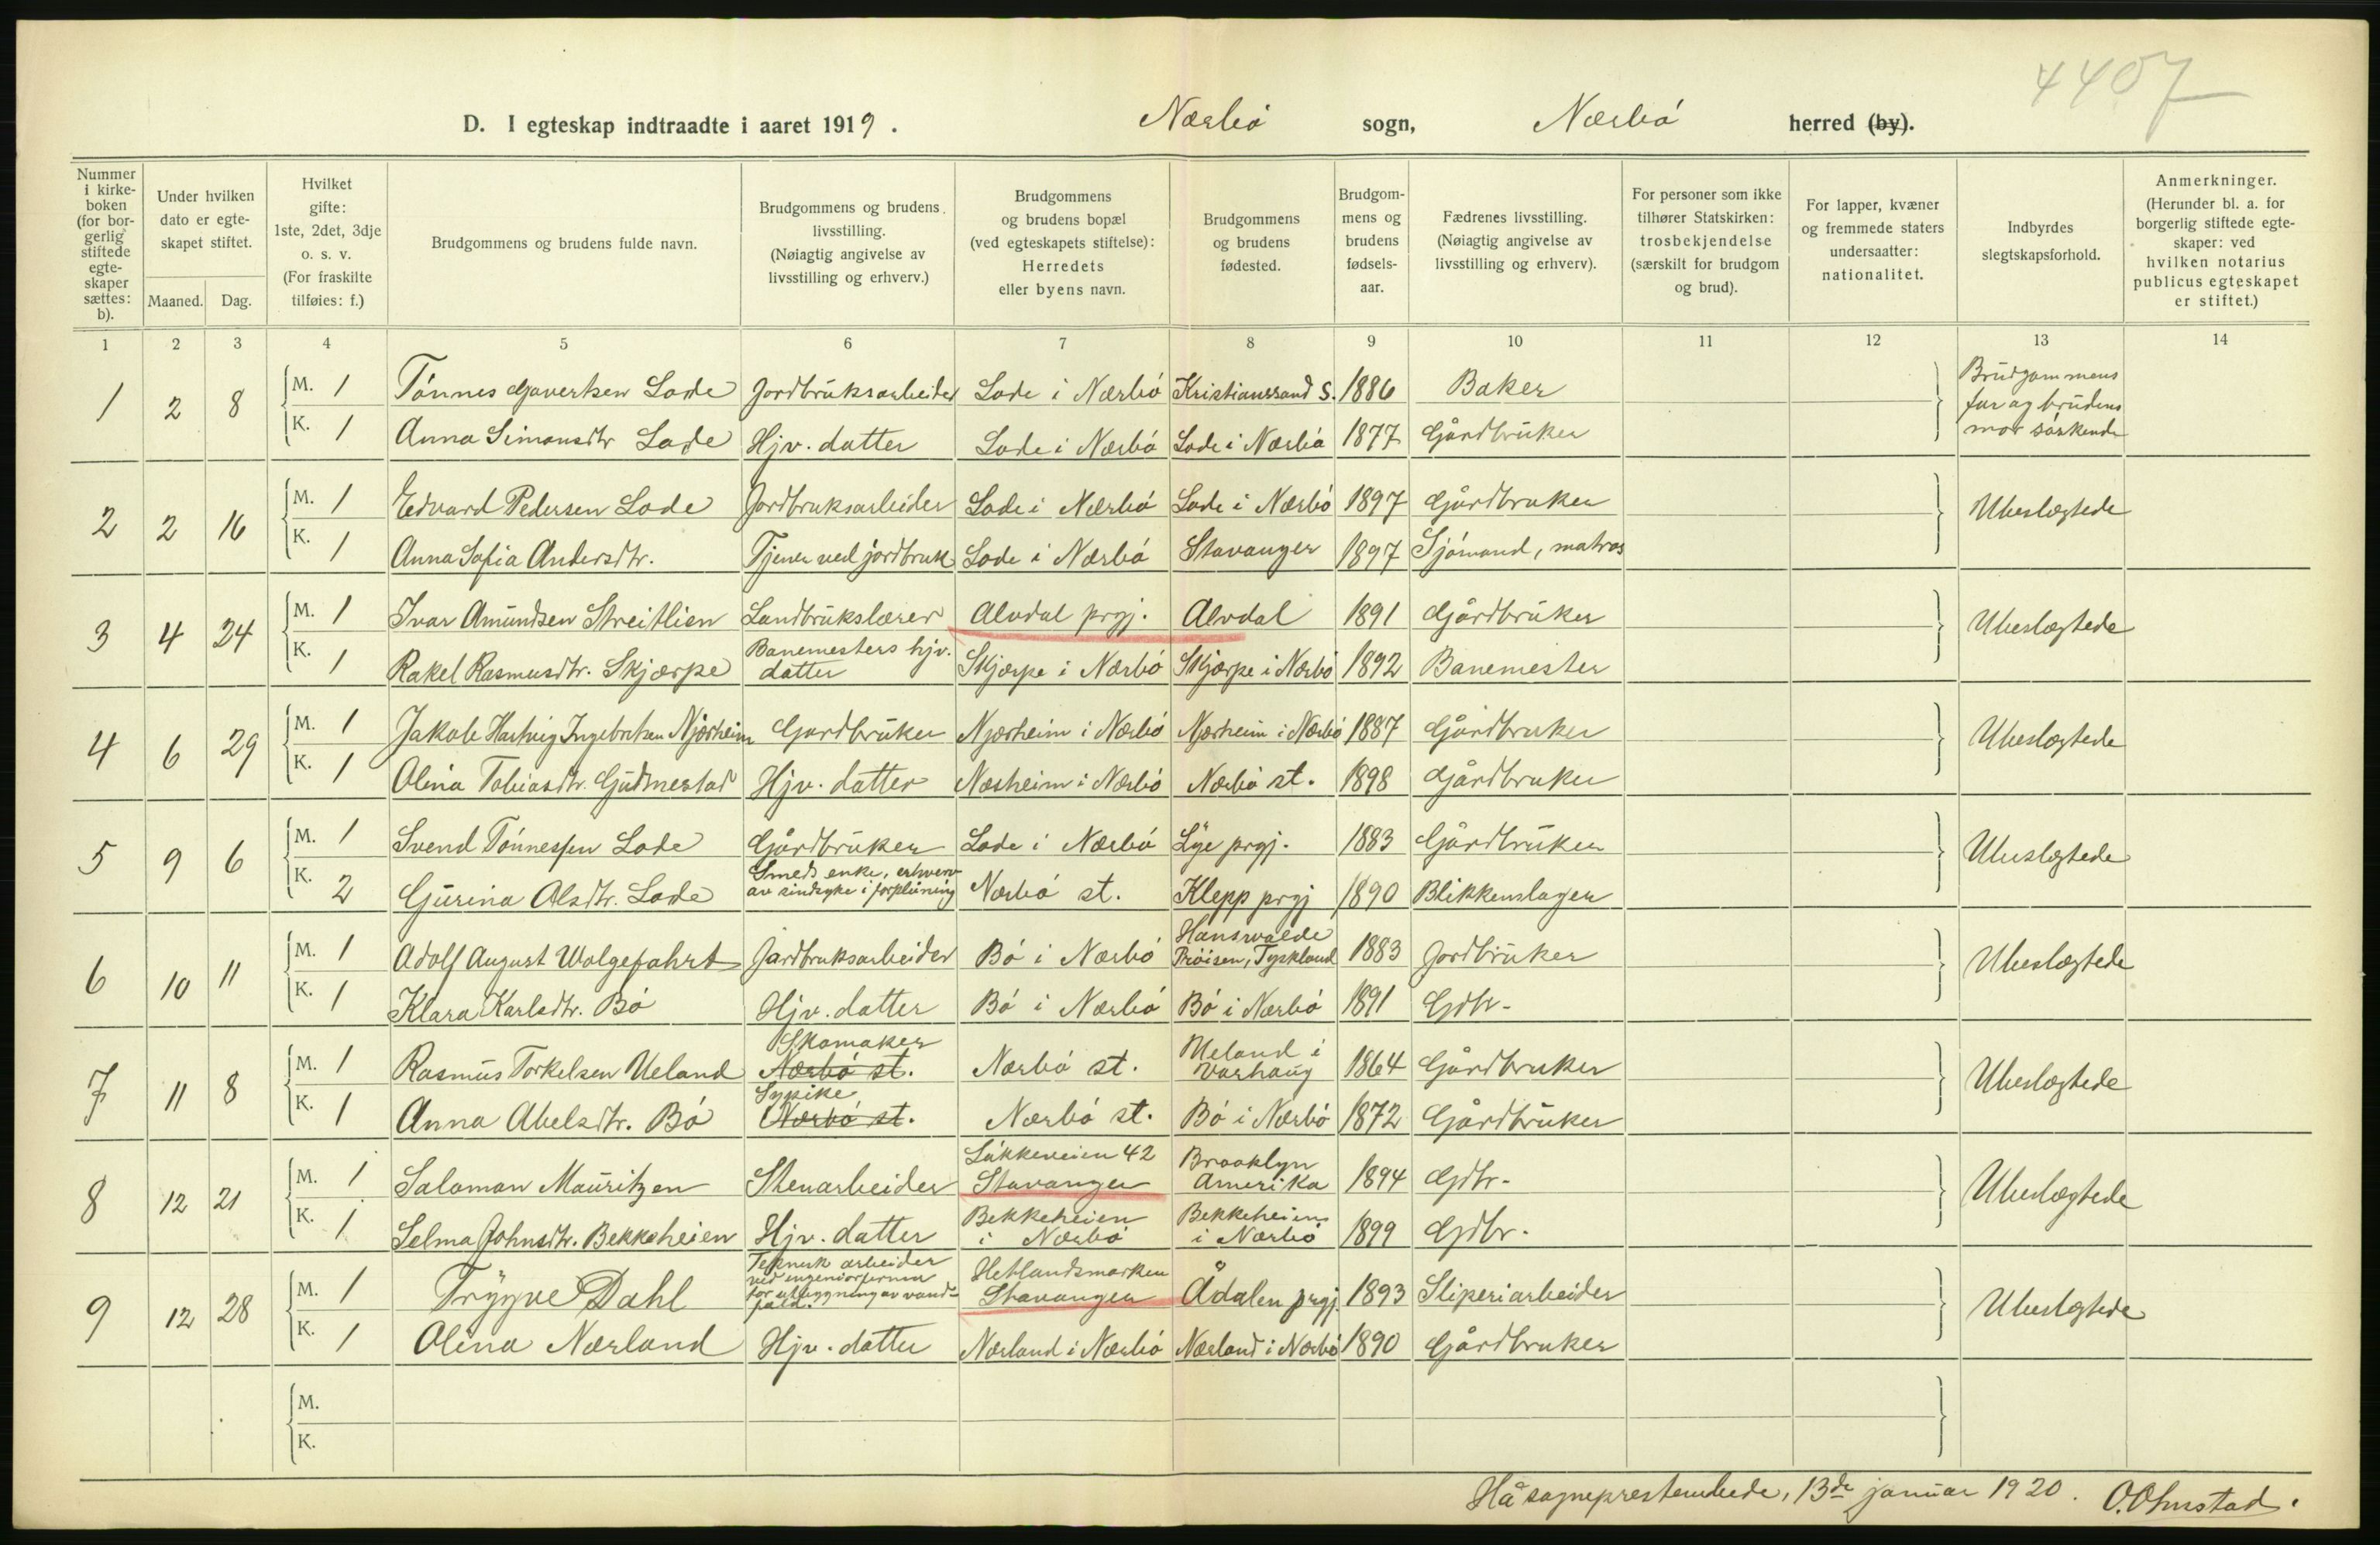 4407
D. I egteskap indtraadte i aaret 1919. Nærbø sogn, Nærbø herred (by).
Nummer i kirkeboken (for borgerlig stiftede egteskaper sættes: b).
Under hvilken dato er egteskapet stiftet.
Maaned. Dag.
Hvilket gifte: 1ste, 2det, 3dje o. s. v. (For fraskilte tilføies: f.)
Brudgommens og brudens fulde navn.
Brudgommens og brudens livsstilling. (Nøiagtig angivelse av livsstilling og erhverv.)
Brudgommens og brudens bopæl (ved egteskapets stiftelse): Herredets eller byens navn.
Brudgommens og brudens fødested.
Brudgommens og brudens fødselsaar.
Fædrenes livsstilling. (Nøiagtig angivelse av livsstilling og erhverv).
For personer som ikke tilhører Statskirken: trosbekjendelse (særskilt for brudgom og brud).
For lapper, kvæner og fremmede staters undersaatter: nationalitet.
Indbyrdes slegtskapsforhold.
Anmerkninger. (Herunder bl. a. for borgerlig stiftede egteskaper: ved hvilken notarius publicus egteskapet er stiftet.)
1 2 3 4 5 6 7 8 9 10 11 12 13 14
1 2 8 M. 1 Tønnes Govertsen Lode Jordbruksarbeider Lode i Nærbø Kristianssand S. 1886 Baker Brudgommens far og brudens mor søskende
K. 1 Anna Simonsdtr Lode Hjv. datter Lode i Nærbø Lode i Nærbø 1877 Gårdbruker
2 2 16 M. 1 Edvard Pedersen Lode Jordbruksarbeider Lode i Nærbø Lode i Nærbø 1897 Gårdbruker Ubeslægtede
K. 1 Anna Sofia Andersdtr. Tjener ved jordbruk Lode i Nærbø Stavanger 1897 Sjømand, matros
3 4 24 M. 1 Ivar Amundsen Streitlien Landbrukslærer Alvdal prgj. Alvdal 1891 Gårdbruker Ubeslægtede
K. 1 Rakel Rasmusdtr. Skjærpe Banemesters hjv. datter Skjærpe i Nærbø Skjærpe i Nærbø 1892 Banemester
4 6 29 M. 1 Jakob Hartvig Ingebretsen Njærheim Gardbruker Njærheim i Nærbø Njærheim i Nærbø 1887 Gårdbruker Ubeslægtede
K. 1 Olina Tobiasdtr. Gudmestad Hjv. datter Næsheim i Nærbø Nærbø st. 1898 Gårdbruker
5 9 6 M. 1 Svend Tønnessen Lode Gårdbruker Lode i Nærbø Lye prgj. 1883 Gårdbruker Ubeslægtede
K. 2 Gurina Olsdtr. Lode Smeds enke, erhverv av sindsyke i forpleining Nærbø st. Klepp prgj 1890 Blikkenslager
6 10 11 M. 1 Adolf August Wolgefahrt Jordbruksarbeider Bø i Nærbø Hanswalde Prøisen, Tyskland 1883 Jordbruker Ubeslægtede
K. 1 Klara Karlsdtr. Bø Hjv. datter Bø i Nærbø Bø i Nærbø 1891 Gdbr.
7 11 8 M. 1 Rasmus Torkelsen Ueland Skomaker Nærbø st. Nærbø st. Ueland i Varhaug 1864 Gårdbruker Ubeslægtede
K. 1 Anna Abelsdtr. Bø Sypike Nærbø st. Nærbø st. Bø i Nærbø 1872 Gårdbruker
8 12 21 M. 1 Salomon Mauritzen Stenarbeider Løkkeveien 42 Stavanger Brooklyn Amerika 1894 Gdbr. Ubeslægtede
K. 1 Selma Johnsdtr. Bekkeheien Hjv. datter Bekkeheien i Nærbø Bekkeheien i Nærbø 1899 Gdbr.
9 12 28 M. 1 Trygve Dahl Teknisk arbeider ved ingeniørfirma for utbygning av vandfald. Hetlandsmarken Stavanger Ådalen prgj. 1893 Sliperiarbeider Ubeslegtede
K. 1 Olina Nærland Hjv. datter Nærland i Nærbø Nærland i Nærbø 1890 Gårdbruker
M.
K.
Hå sogneprestembede, 13de januar 1920. O. Olmstad.